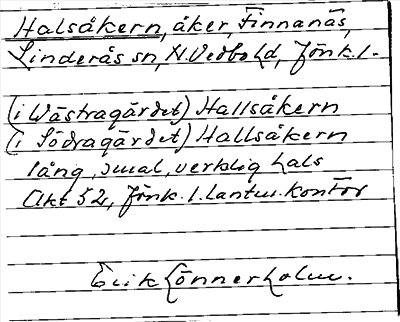 Halsåkern, åker, Finnanäs,
Linderås sn, N. Vedbo hd, Jönk. l.
(i Wästragärdet) Hallsåkern
(i Södragärdet) Hallsåkern
lång, smal, verklig hals
Akt 52, Jönk. l. lantm. kontor
Erik Lönnerholm.